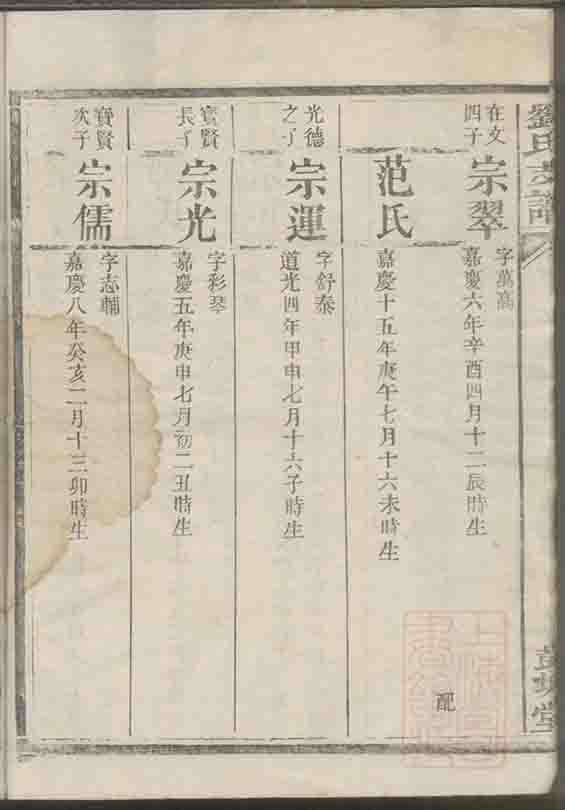 劉氏宗譜
在文
四子
宗翠
字萬高
嘉慶六年辛酉四月十二辰時生
配
范氏
嘉慶十五年庚午七月十六未時生
光德
之子
宗運
字舒泰
道光四年甲申七月十六子時生
寶賢
長子
宗光
字彩琴
嘉慶五年庚申七月初二丑時生
寶賢
次子
宗儒
字志輔
嘉慶八年癸亥二月十三卯時生
堂